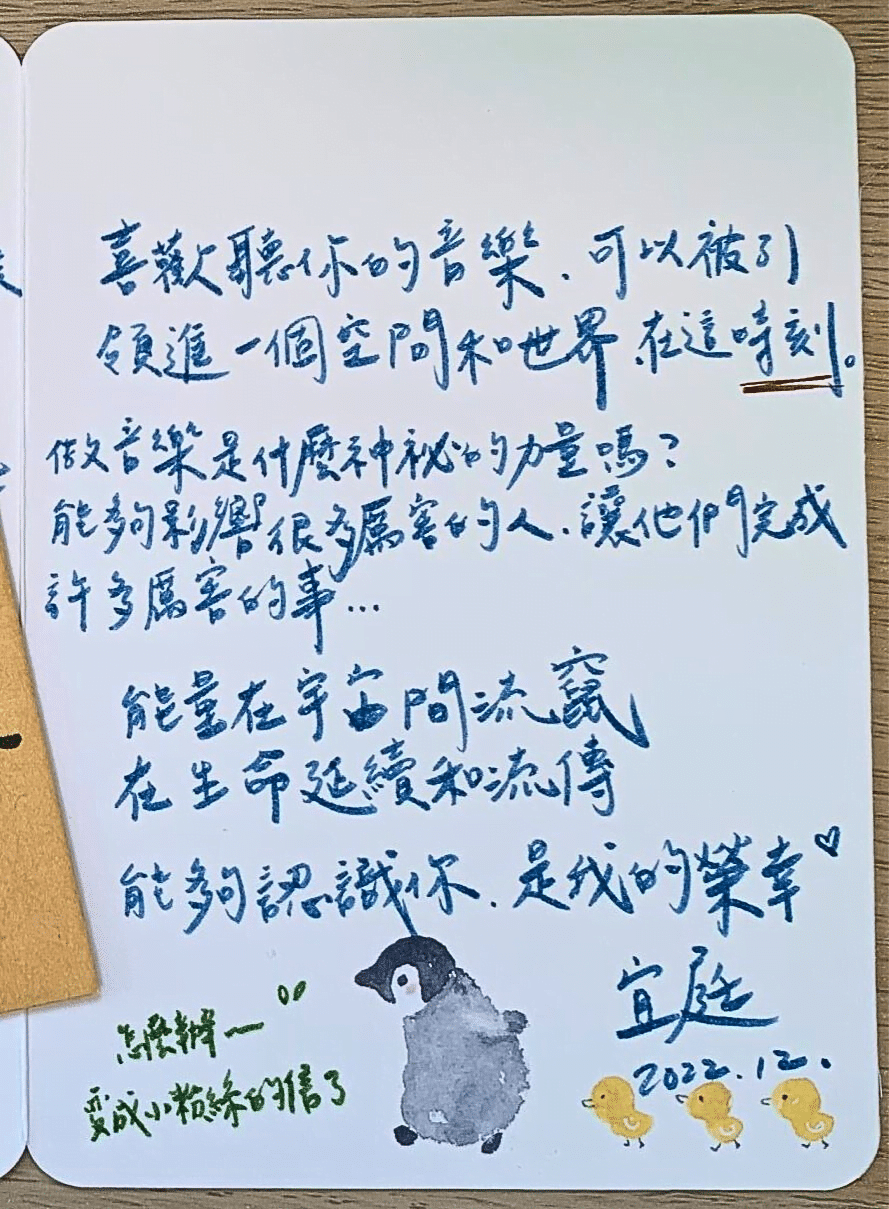 喜歡聽你的音樂、可以被引
領進一個空間和世界、在這時刻。
做音樂是什麼神祕的力量嗎？
能夠影響很多厲害的人、讓他們完成
許多厲害的事…
能量在宇宙間流竄
在生命延續和流傳
能夠認識你、是我的榮幸♡
宜庭
2022.12.
怎麼辦一
變成小粉絲的信了